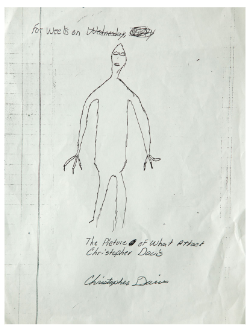 For Weeks on Wednesday
The Picture of What Attact
Christopher Davis
Christopher Davis